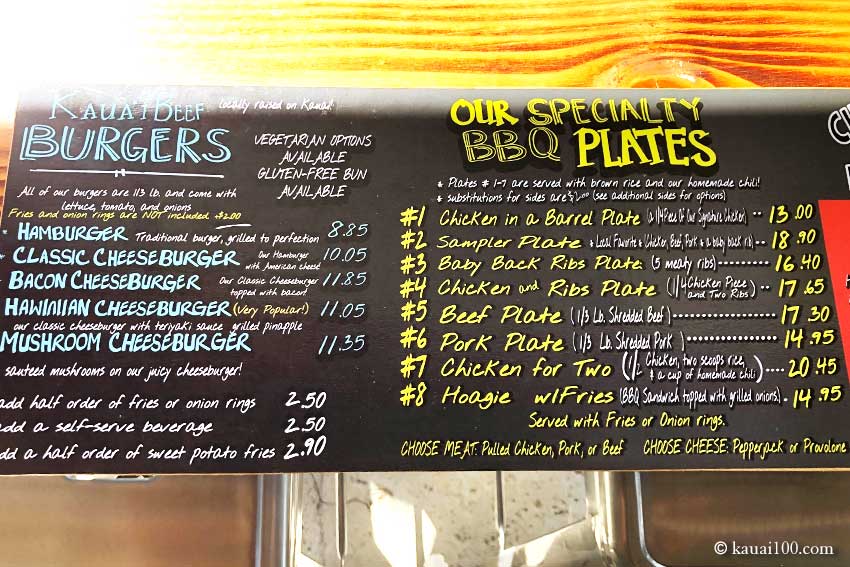 KAUA'I BEEF locally raised on Kauai!
BURGERS
VEGETARIAN OPTIONS
AVAILABLE
GLUTEN-FREE BUN
AVAILABLE
All of our burgers are 1/3 lb. and come with
lettuce, tomato, and onions
Fries and onion rings are NOT included +$2.00
HAMBURGER Traditional burger, grilled to perfection 8.85
CLASSIC CHEESEBURGER Our Hamburger with American cheese 10.05
BACON CHEESEBURGER Our Classic Cheeseburger topped with bacon! 11.85
HAWIIAN CHEESEBURGER (Very Popular!) 11.05
our classic cheeseburger with teriyaki sauce grilled pineapple
MUSHROOM CHEESEBURGER 11.35
sauteed mushrooms on our juicy cheeseburger!
add half order of fries or onion rings 2.50
add a self-serve beverage 2.50
add a half order of sweet potato fries 2.90
OUR SPECIALTY
BBQ PLATES
* Plates # 1-7 are served with brown rice and our homemade chili!
* substitutions for sides are (see additional sides for options)
#1 Chicken in a Barrel Plate (a 1/4 Piece Of Our Signature Chicken) -- 13.00
#2 Sampler Plate * Local Favorite * Chicken, Beef, Pork & a baby back rib -- 18.90
#3 Baby Back Ribs Plate (5 meaty ribs) --------- 16.40
#4 Chicken and Ribs Plate (1/4 Chicken Piece and Two Ribs) -- 17.65
#5 Beef Plate (1/3 Lb. Shredded Beef) ----------- 17.30
#6 Pork Plate (1/3 Lb. Shredded Pork) ----------- 14.95
#7 Chicken for Two (1/2 Chicken, two scoops rice, & a cup of homemade chili) ---- 20.45
#8 Hoagie w/Fries (BBQ Sandwich topped with grilled onions) - 14.95
Served with Fries or Onion rings.
CHOOSE MEAT: Pulled Chicken, Pork, or Beef CHOOSE CHEESE: Pepperjack or Provolone
© kauai100.com